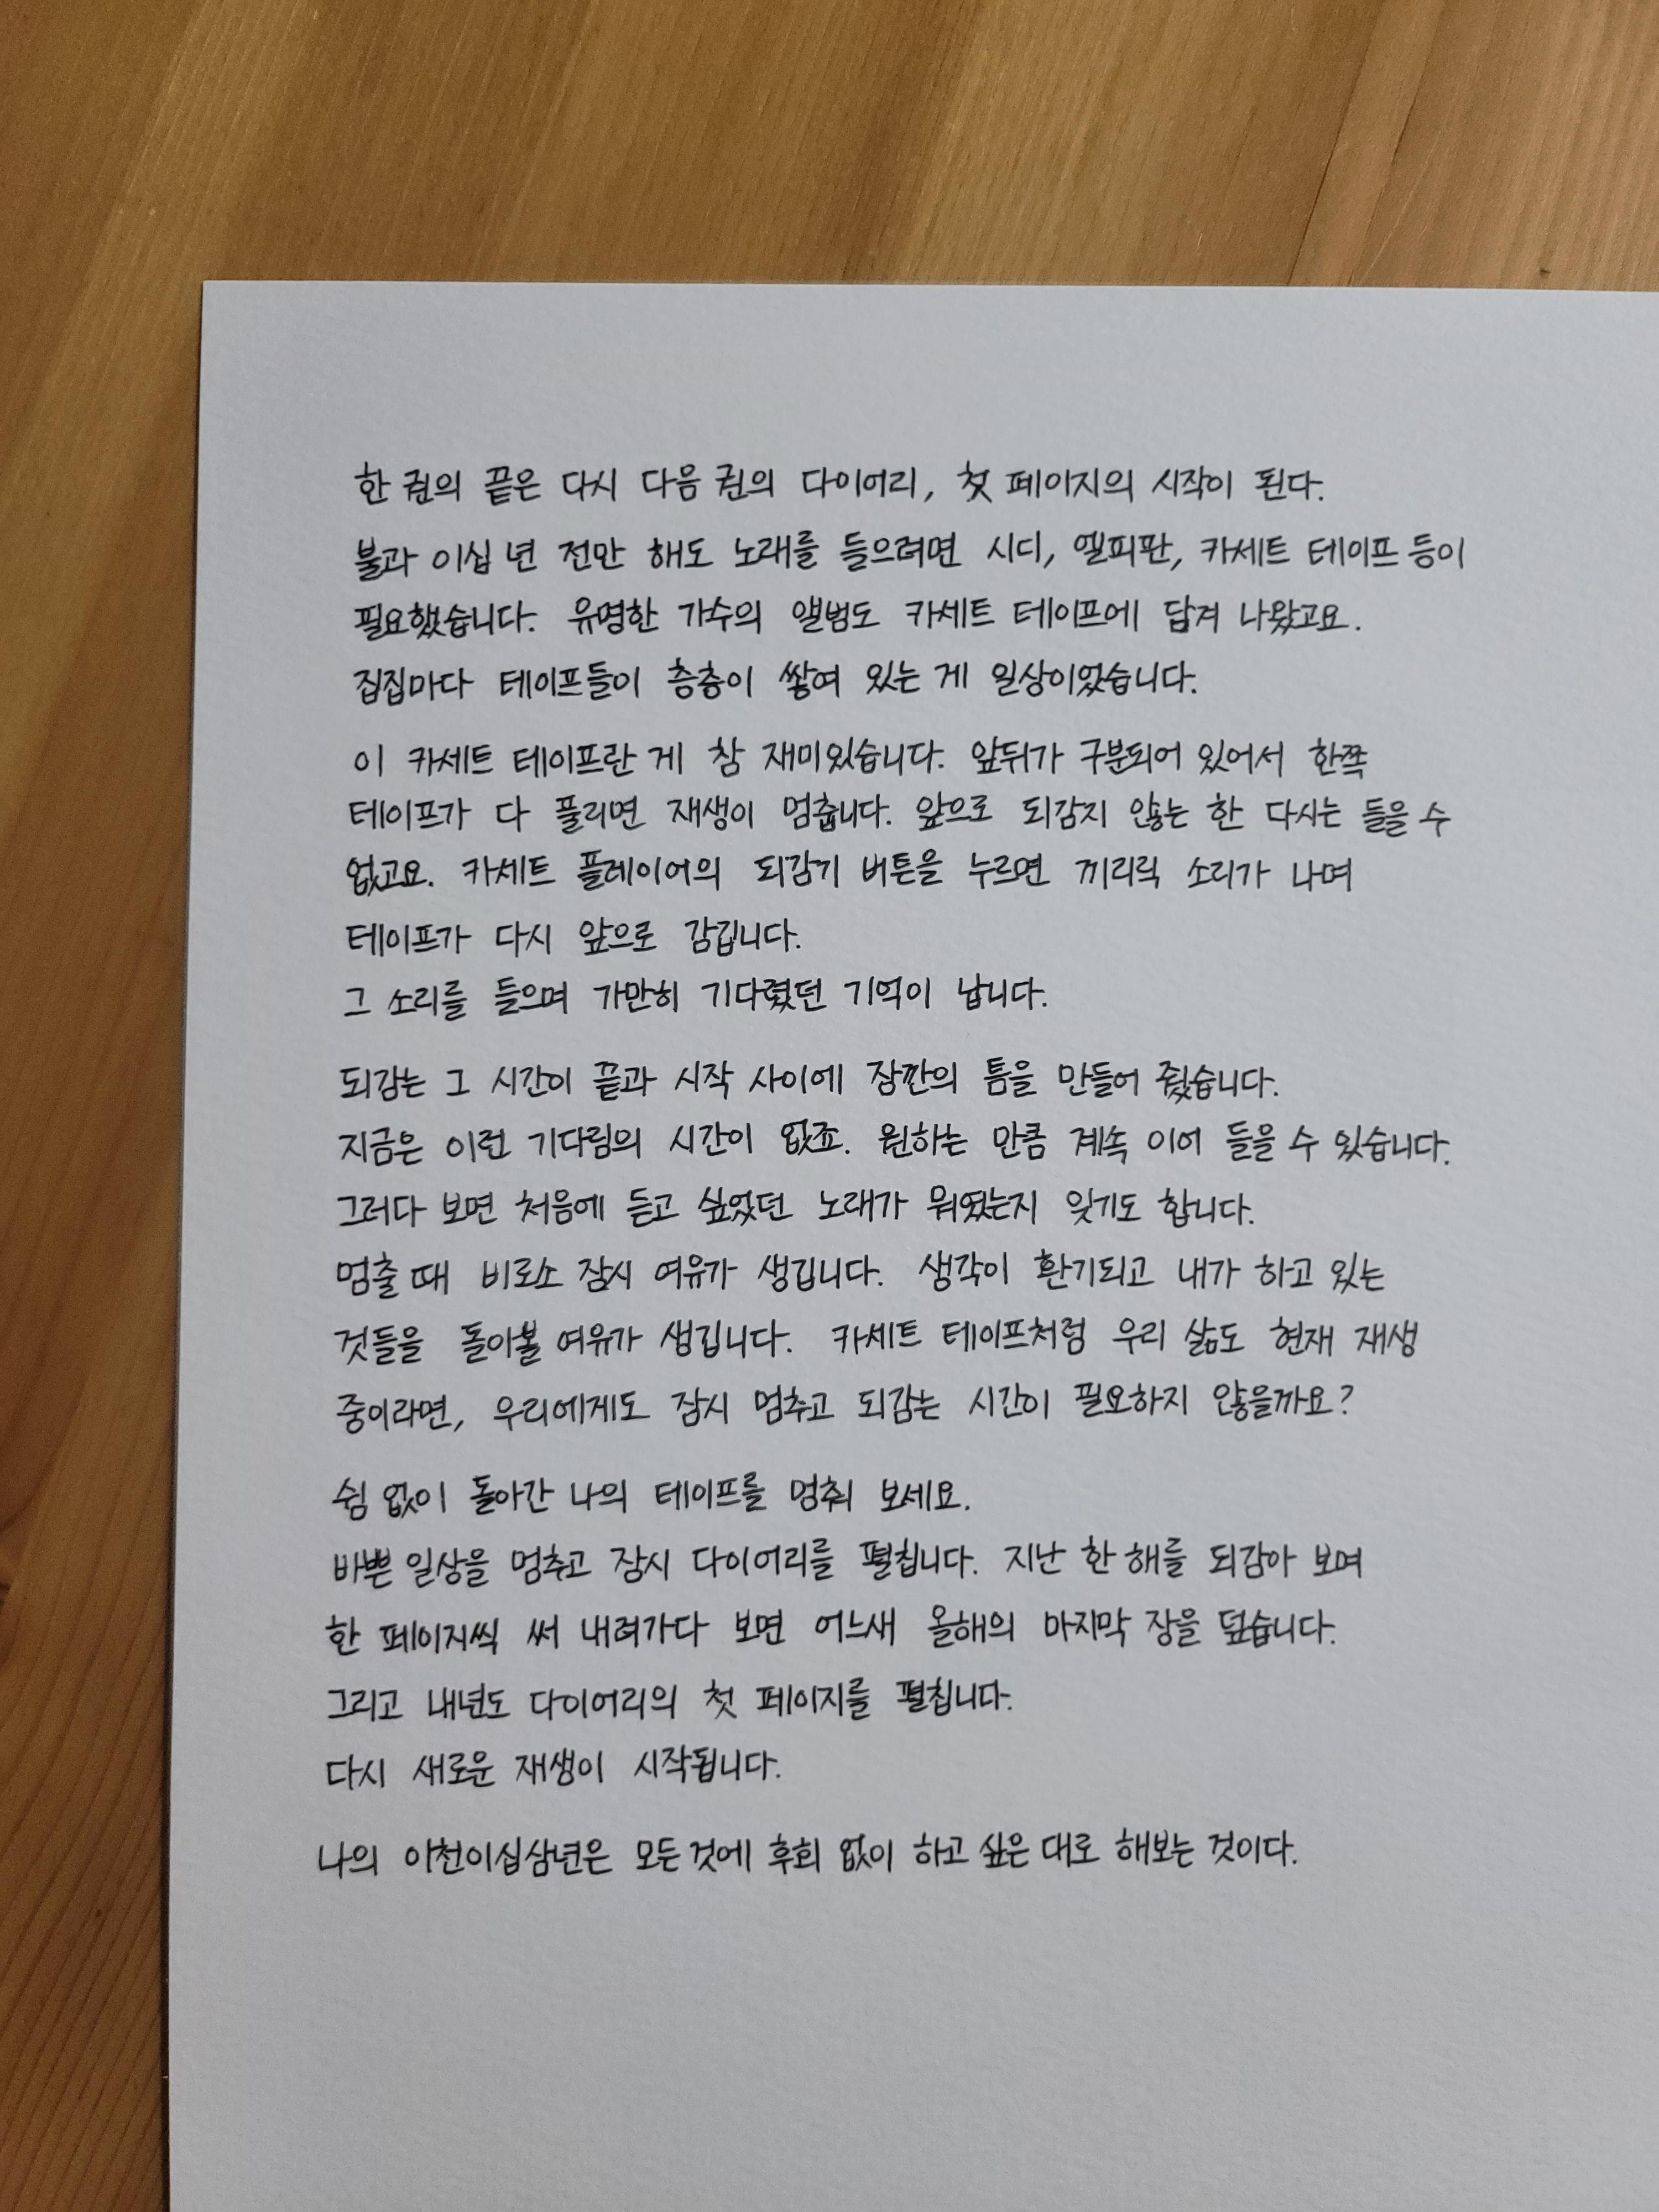 한 권의 끝은 다시 다음 권의 다이어리, 첫 페이지의 시작이 된다.
불과 이십 년 전만 해도 노래를 들으려면 시디, 엘피판, 카세트 테이프 등이
필요했습니다. 유명한 가수의 앨범도 카세트 테이프에 담겨 나왔고요.
집집마다 테이프들이 층층이 쌓여 있는 게 일상이었습니다.
이 카세트 테이프란 게 참 재미있습니다. 앞뒤가 구분되어 있어서 한쪽
테이프가 다 풀리면 재생이 멈춥니다. 앞으로 되감지 않는 한 다시는 들을 수
없고요. 카세트 플레이어의 되감기 버튼을 누르면 끼리릭 소리가 나며
테이프가 다시 앞으로 감깁니다.
그 소리를 들으며 가만히 기다렸던 기억이 납니다.
되감는 그 시간이 끝과 시작 사이에 잠깐의 틈을 만들어 줬습니다.
지금은 이런 기다림의 시간이 없죠. 원하는 만큼 계속 이어 들을 수 있습니다.
그러다 보면 처음에 듣고 싶었던 노래가 뭐였는지 잊기도 합니다.
멈출 때 비로소 잠시 여유가 생깁니다. 생각이 환기되고 내가 하고 있는
것들을 돌아볼 여유가 생깁니다. 카세트 테이프처럼 우리 삶도 현재 재생
중이라면, 우리에게도 잠시 멈추고 되감는 시간이 필요하지 않을까요?
쉼 없이 돌아간 나의 테이프를 멈춰 보세요.
바쁜 일상을 멈추고 잠시 다이어리를 펼칩니다. 지난 한 해를 되감아 보며
한 페이지씩 써 내려가다 보면 어느새 올해의 마지막 장을 덮습니다.
그리고 내년도 다이어리의 첫 페이지를 펼칩니다.
다시 새로운 재생이 시작됩니다.
나의 이천이십삼년은 모든 것에 후회 없이 하고 싶은 대로 해보는 것이다.